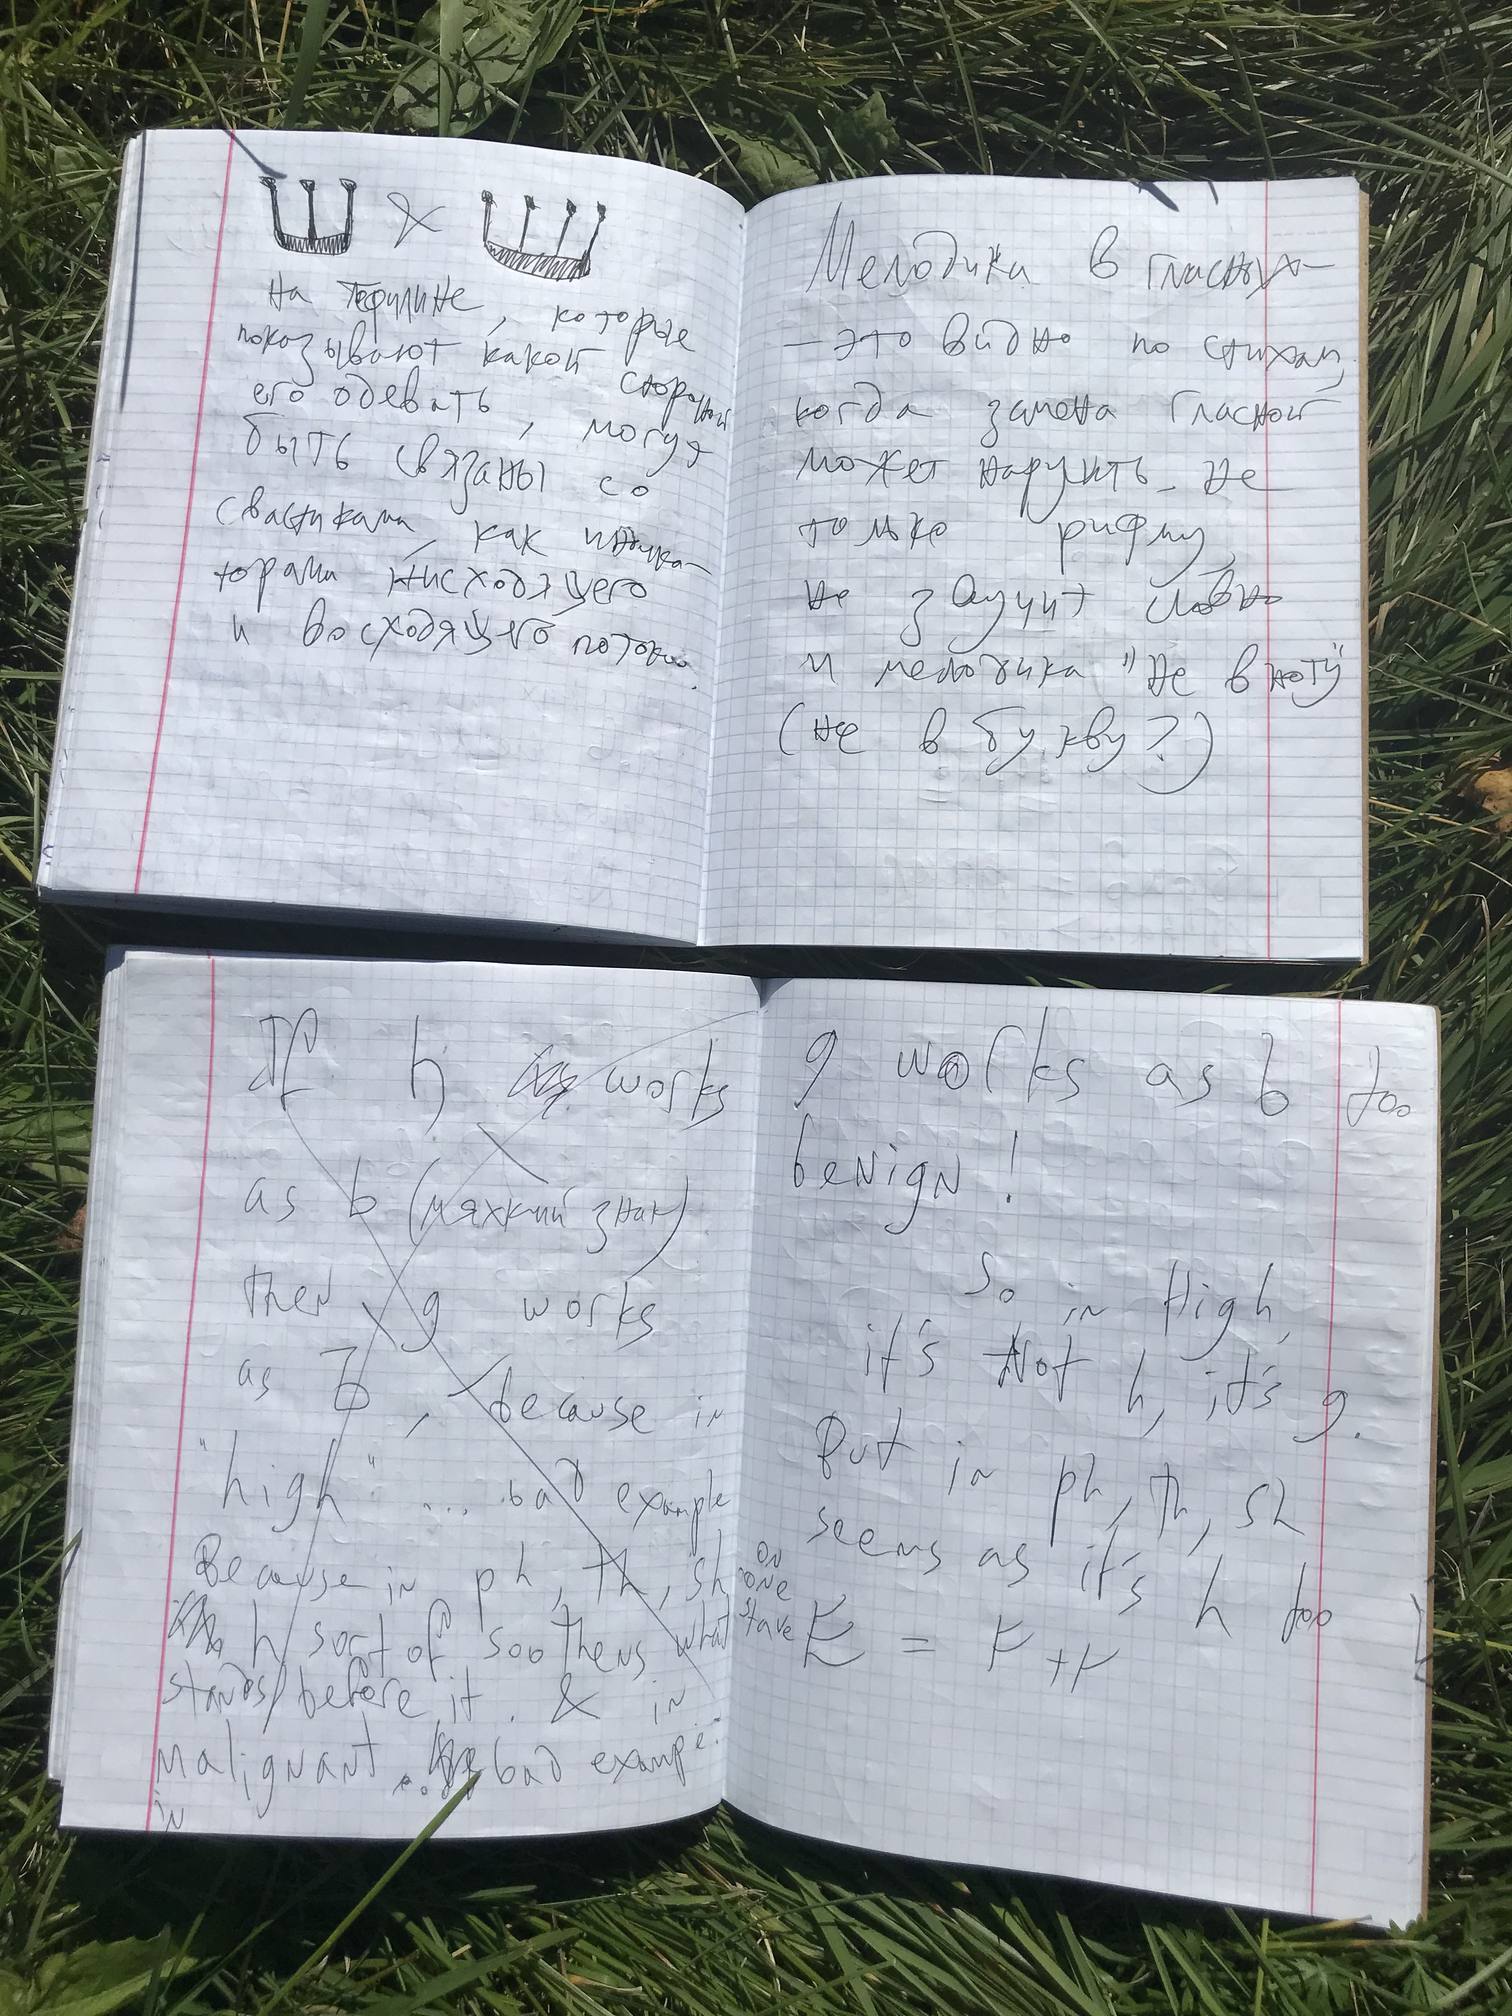 &
На тфилине, которые
показывают какой стороной
его одевать, могут
быть связаны со
свастиками, как индика-
торами нисходящего
и восходящего потоков.
Мелодика в гласных -
- это видно по стихам,
когда замена гласной
может нарушить не
только рифму,
не звучит словно
и мелодика "не в ноту"
(не в букву?)
If h works
as ь (мяхкий знак)
then g works
as Ъ, because in
"high" ... bad example
Because in ph, th, sh
h sort of soothens what
stands before it. & in
malignant... bad exampe.
in
g works as ь too
benign!
So in High,
it's Not h, it's g.
But in ph, th, sh
seems as it's h too
on
one
stave
E = F + F